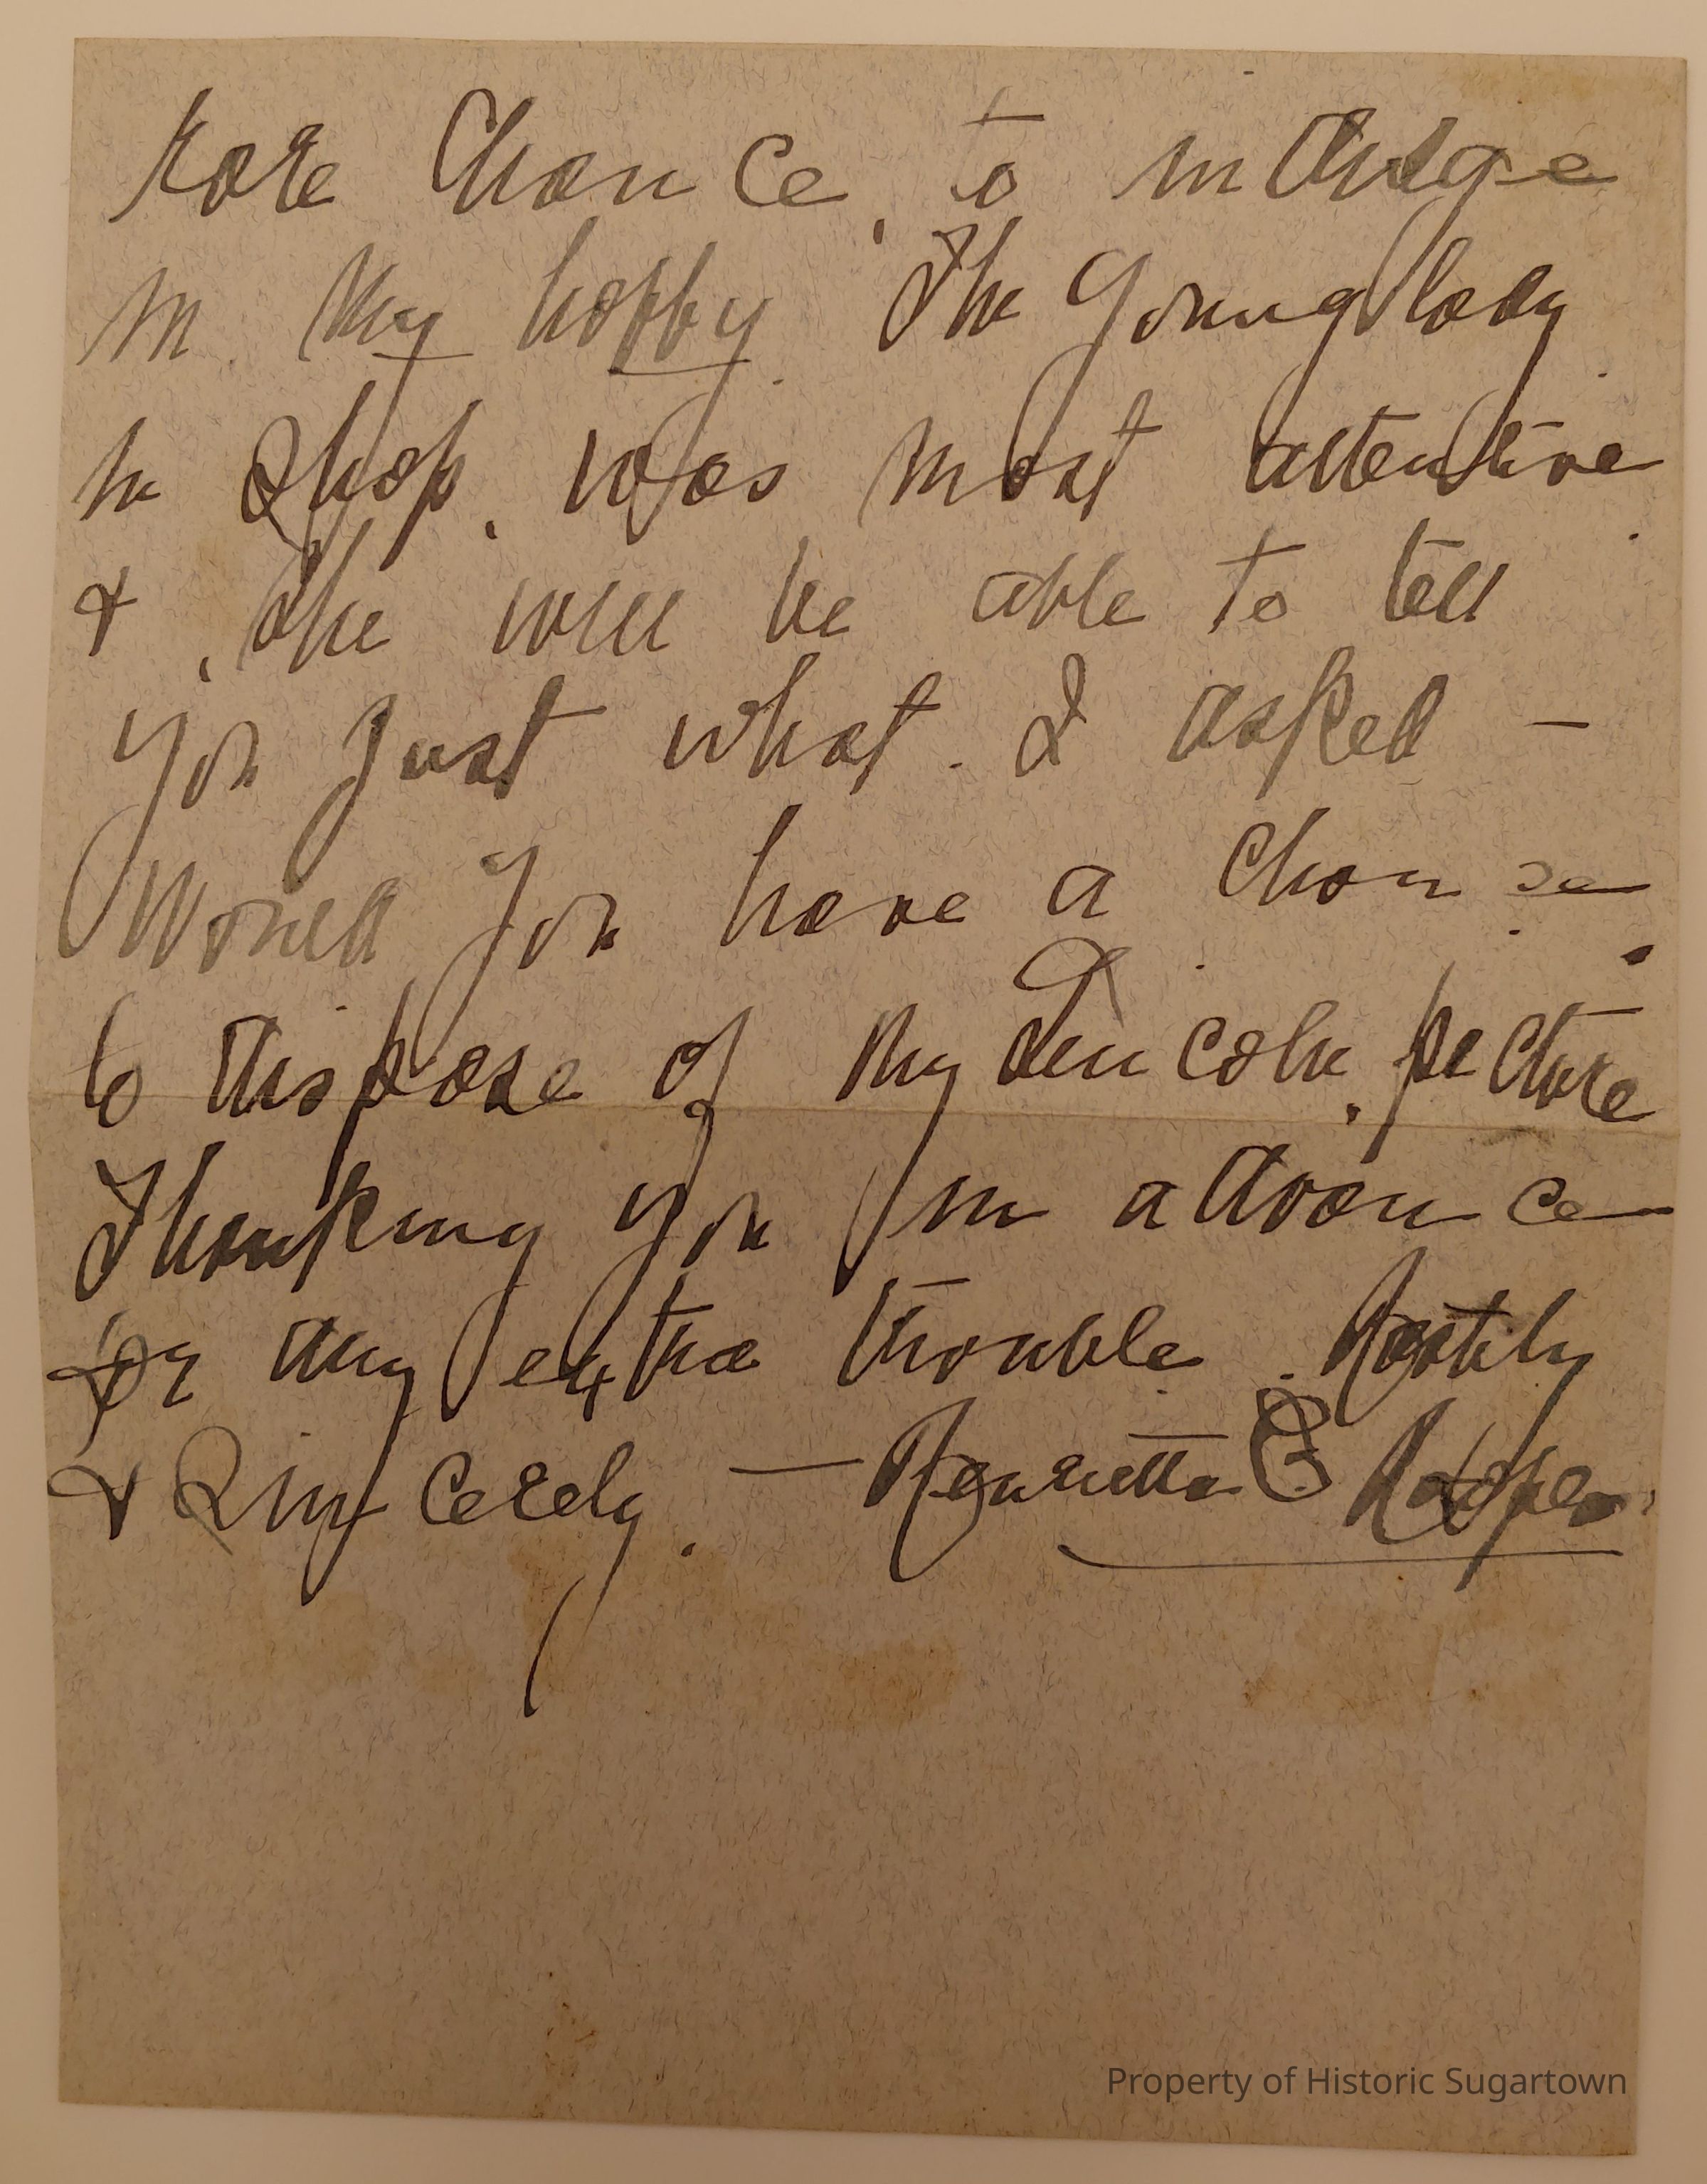 rare chance, to indulge
in my hobby. The young lady
in shop, was most attentive.
& she will be able to tell
you just what I asked —
Would you have a chance
to dispose of my Lincoln picture
Thanking you in advance
for any extra trouble. Hastily
& Sincerely. — Henrietta
Property of Historic Sugartown